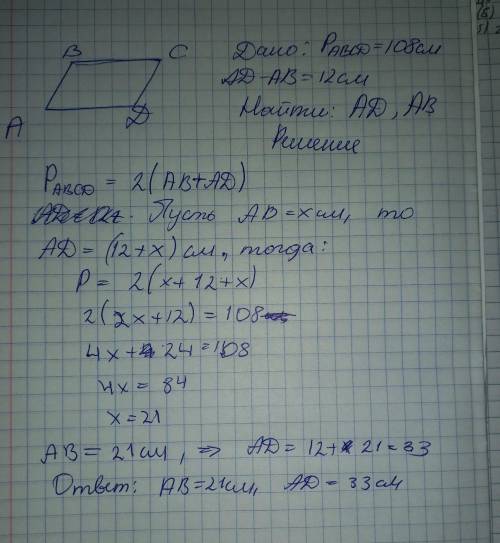 B C
A D
Дано: P_ABCD = 108см
AD - AB = 12см
Найти: AD, AB
Решение
P_ABCD = 2(AB + AD)
Пусть AB = x см, то
AD = (12 + x) см, тогда:
P = 2(x + 12 + x)
2(2x + 12) = 108
4x + 24 = 108
4x = 84
x = 21
AB = 21см, ⇒ AD = 12 + 21 = 33
Ответ: AB = 21см, AD = 33см